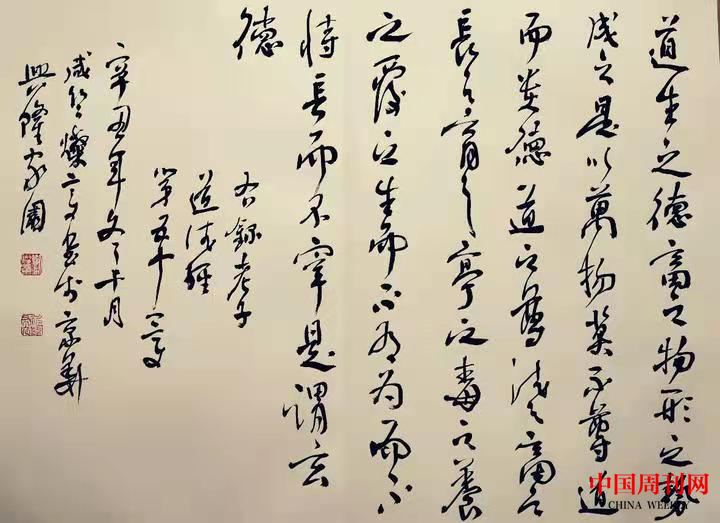 道生之德畜之物形之勢
成之是以萬物莫不尊道
而貴德道之德之畜之
長之育之亭之毒之養
之覆之生而不有為而不
恃長而不宰是謂玄
德
右錄老子
道德經
第五十一章
辛丑年十月
燦書於京華
興隆家園
中国周刊网
CHINA WEEKLY